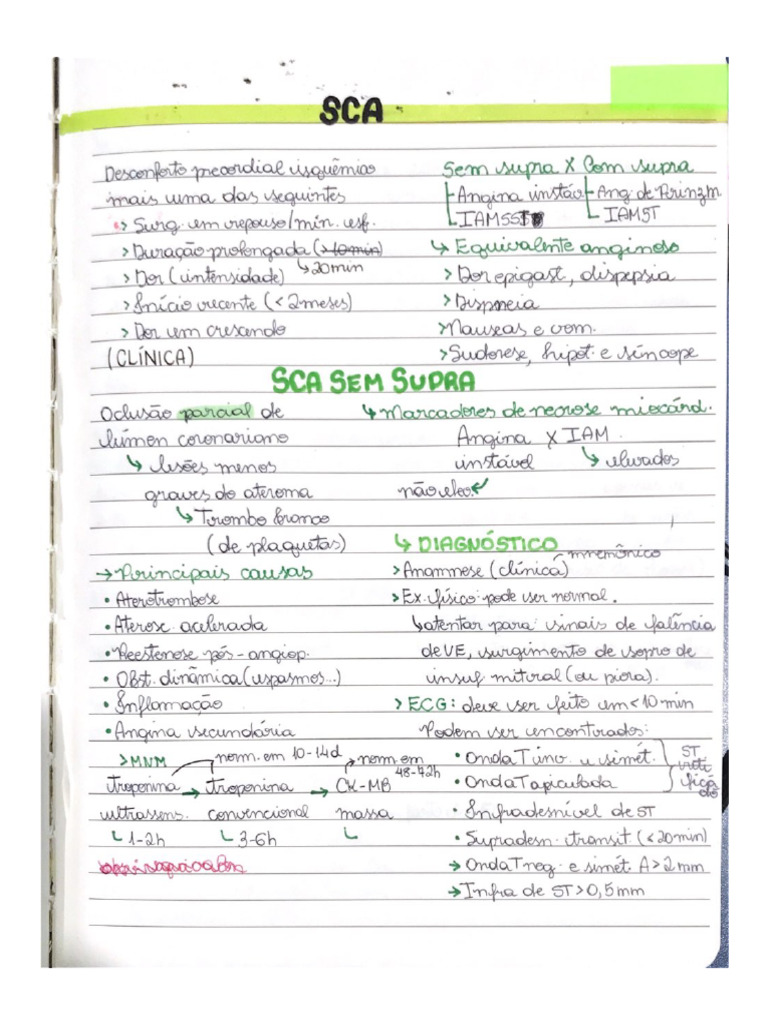 SCA
Desconforto precordial isquêmico
mais uma das seguintes
> Surg. em repouso/mín. esf.
> Duração prolongada (>10min)
↳ 20min
> Dor (intensidade)
> Início recente (< 2 meses)
> Dor em crescendo
(CLÍNICA)
Sem supra X Com supra
Angina instáv
IAMSST
Ang. de Prinzm
IAMST
↳ Equivalente anginoso
> Dor epigast, dispepsia
> Dispneia
> Nauseas e vom.
> Sudorese, hipot. e síncope
SCA SEM SUPRA
Oclusão parcial de
lúmen coronariano
↳ lesões menos
graves do ateroma
↳ Trombo branco
(de plaquetas)
→ Principais causas
• Aterotrombose
• Aterosc. acelerada
• Reestenose pós-angiop.
• Obst. dinâmica (espasmos...)
• Inflamação
• Angina secundária
> MNM
norm. em 10-14d
norm. em
48-72h
troponina → troponina → CK-MB
ultrassens. convencional massa
↳ 1-2h ↳ 3-6h ↳
↳ Marcadores de necrose miocárd.
Angina X IAM
instável ↳ elevados
não elev.
↳ DIAGNÓSTICO
mnemônico
> Anamnese (clínica)
> Ex. físico: pode ser normal.
↳ atentar para sinais de falência
de VE, surgimento de sopro de
insuf. mitral (ou piora).
> ECG: deve ser feito em < 10 min
Podem ser encontrados:
• Onda T inv. e simét.
• Onda T apiculada
ST
reti
ficá
do
• Infradesnível de ST
• Supradesn. transit. (< 20min)
→ Onda T neg. e simét. A > 2 mm
→ Infra de ST > 0,5 mm